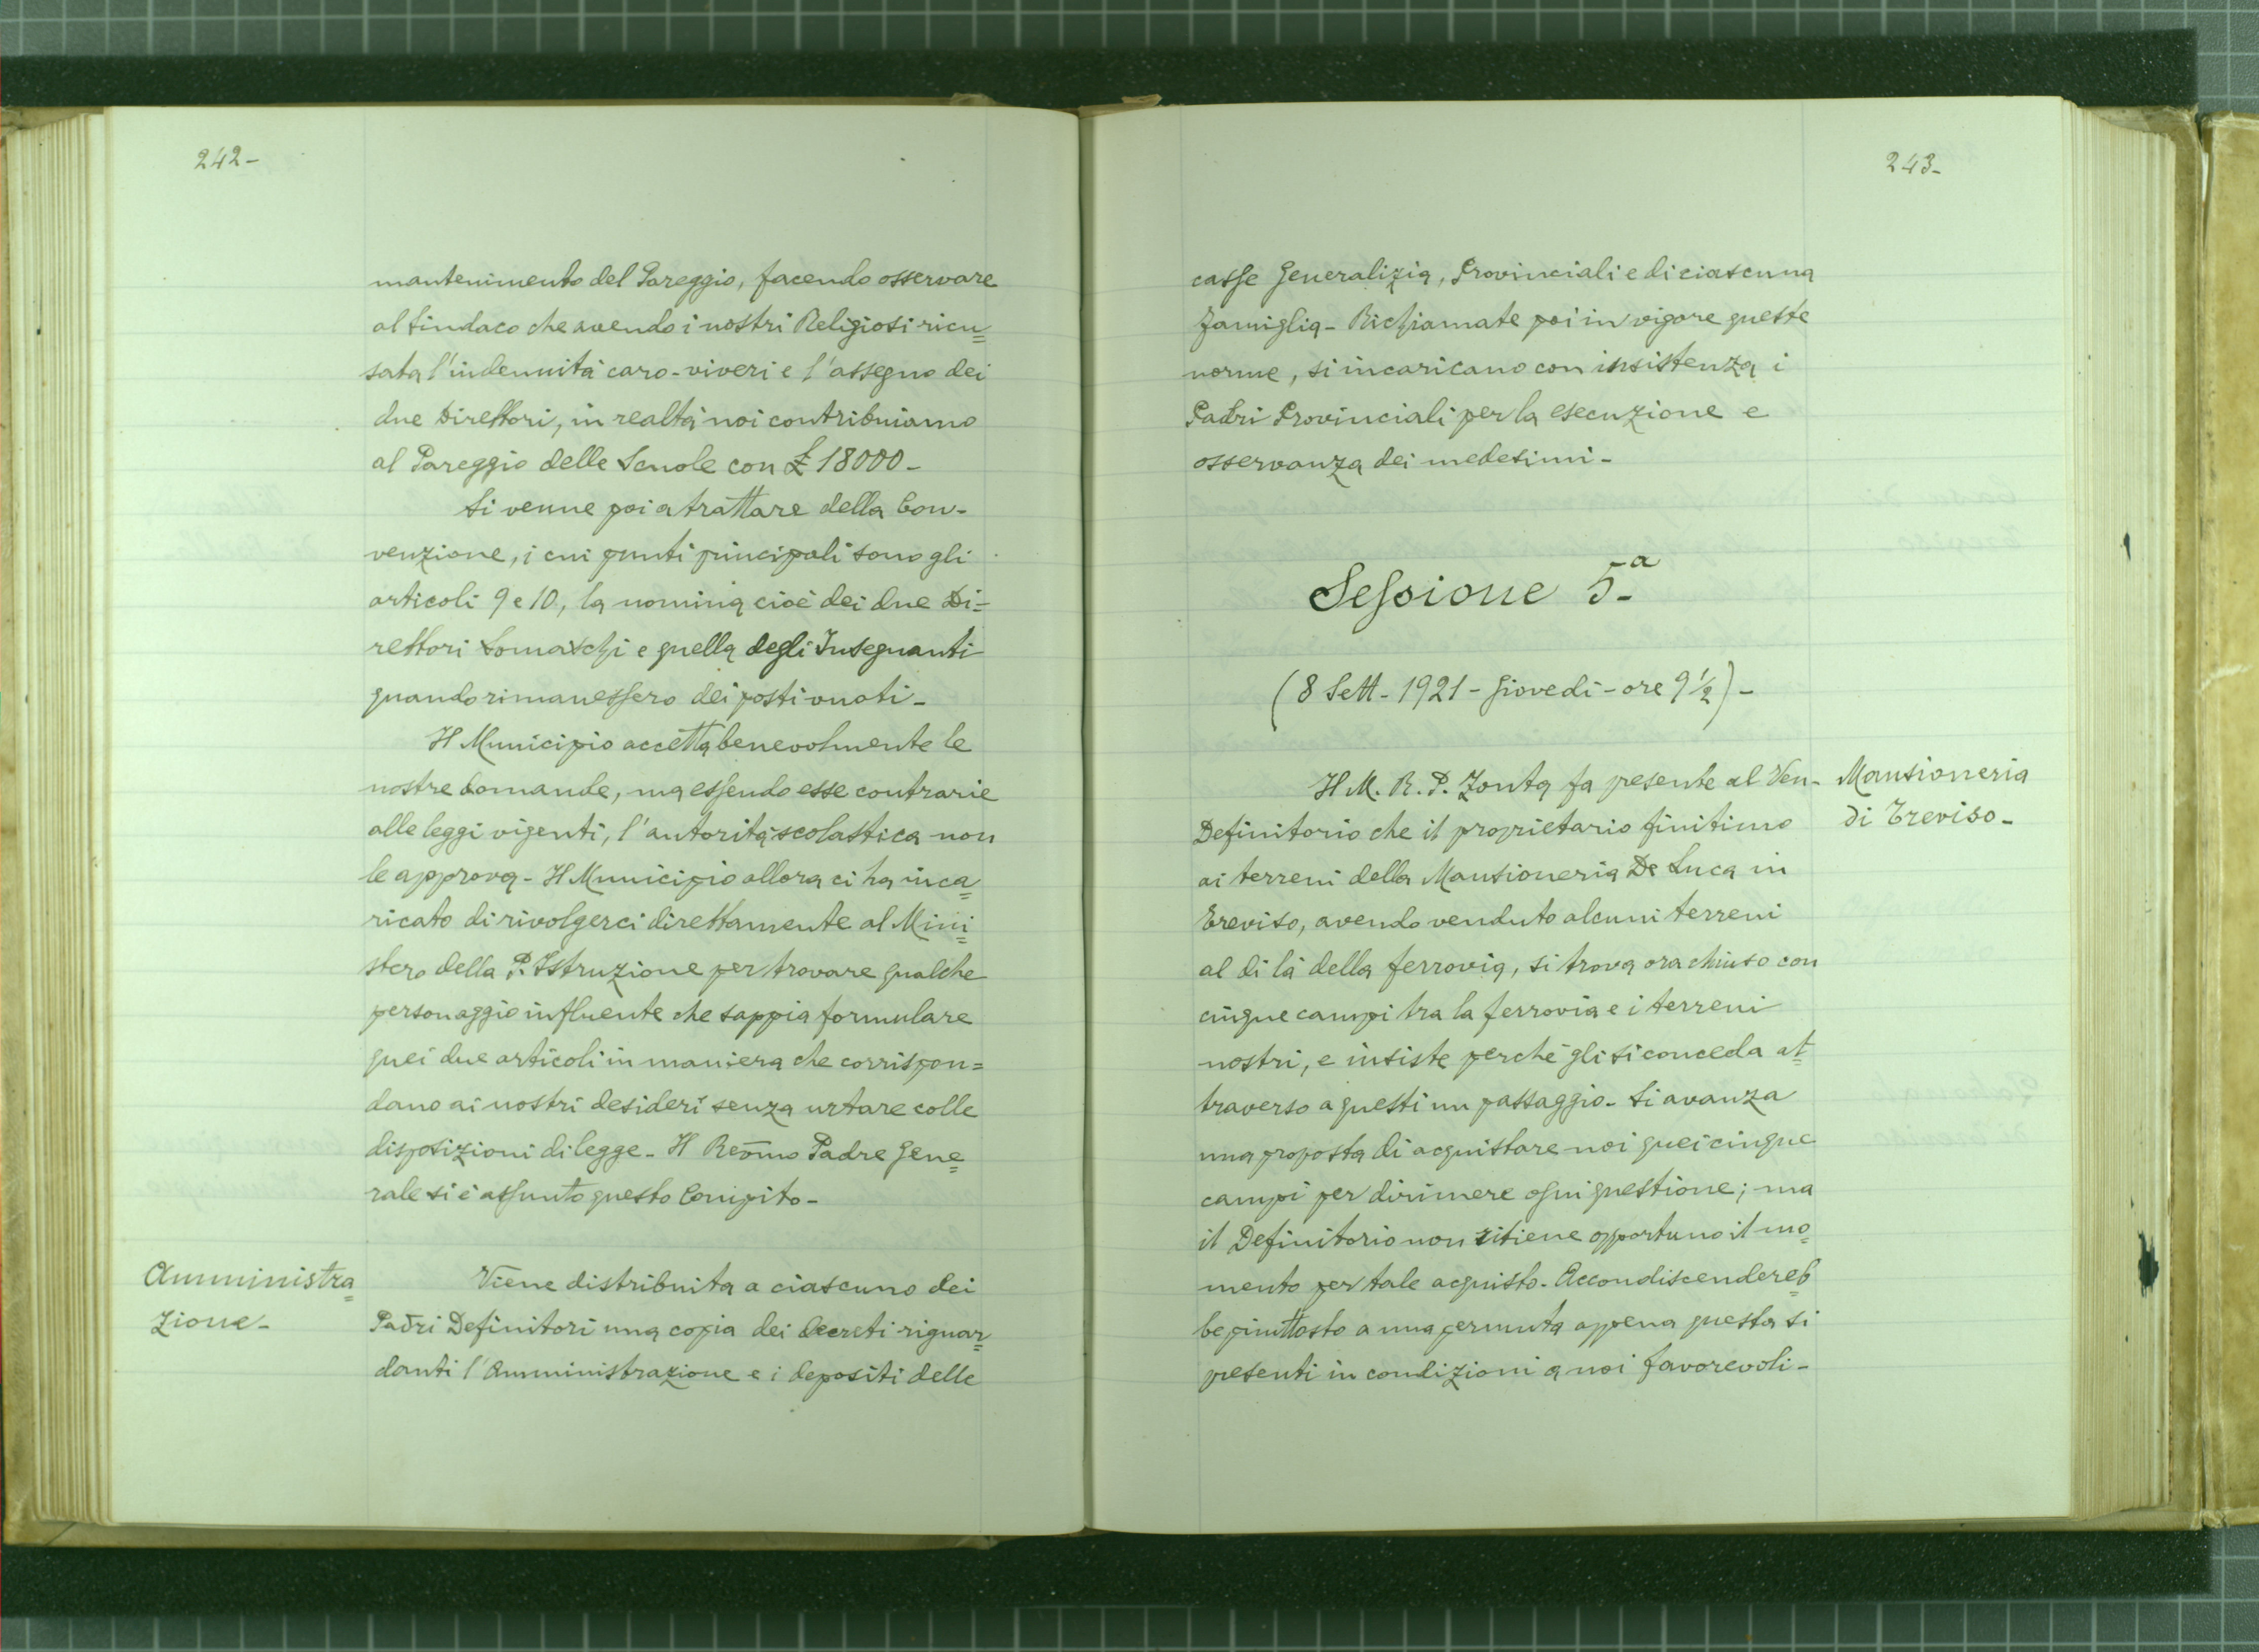 242-
mantenimento del Pareggio, facendo osservare
al Sindaco che avendo i nostri Religiosi ricu=
sata l'indennità caro-viveri e l'assegno dei
due Direttori, in realtà noi contribuiamo
al Pareggio delle Scuole con £ 18000-
Si venne poi a trattare della Con-
venzione, i cui punti principali sono gli
articoli 9 e 10, la nomina cioè dei due Di=
rettori Somaschi e quella degli Insegnanti
quando rimanessero dei posti vuoti-
Il Municipio accetta benevolmente le
nostre domande, ma essendo esse contrarie
alle leggi vigenti, l'autorità scolastica non
le approva- Il Municipio allora ci ha inca=
ricato di rivolgerci direttamente al Mini=
stero della P. Istruzione per trovare qualche
personaggio influente che sappia formulare
quei due articoli in maniera che corrispon=
dano ai nostri desideri senza urtare colle
disposizioni di legge- Il Reṽmo Padre Gene=
rale si è assunto questo Compito-
Amministra=
zione-
Viene distribuita a ciascuno dei
Padri Definitori una copia dei decreti riguar=
danti l'Amministrazione e i depositi delle
243-
casse Generalizia, Provinciali e di ciascuna
famiglia- Richiamate poi in vigore queste
norme, si incaricano con insistenza i
Padri Provinciali per la esecuzione e
osservanza dei medesimi-
Sessione 5.a
(8 Sett- 1921- Giovedì- ore 9½)-
Mansioneria
di Treviso-
Il M. R. P. Zonta fa presente al Ven-
Definitorio che il proprietario finitimo
ai terreni della Mansioneria De Luca in
Treviso, avendo venduto alcuni terreni
al di là della ferrovia, si trova ora chiuso con
cinque campi tra la ferrovia e i terreni
nostri, e insiste perchè gli si conceda at=
traverso a questi un passaggio- Si avanza
una proposta di acquistare noi quei cinque
campi per dirimere ogni questione; ma
il Definitorio non ritiene opportuno il mo=
mento per tale acquisto- Accondiscendereb=
be piuttosto a una permuta appena questa si
presenti in condizioni a noi favorevoli-